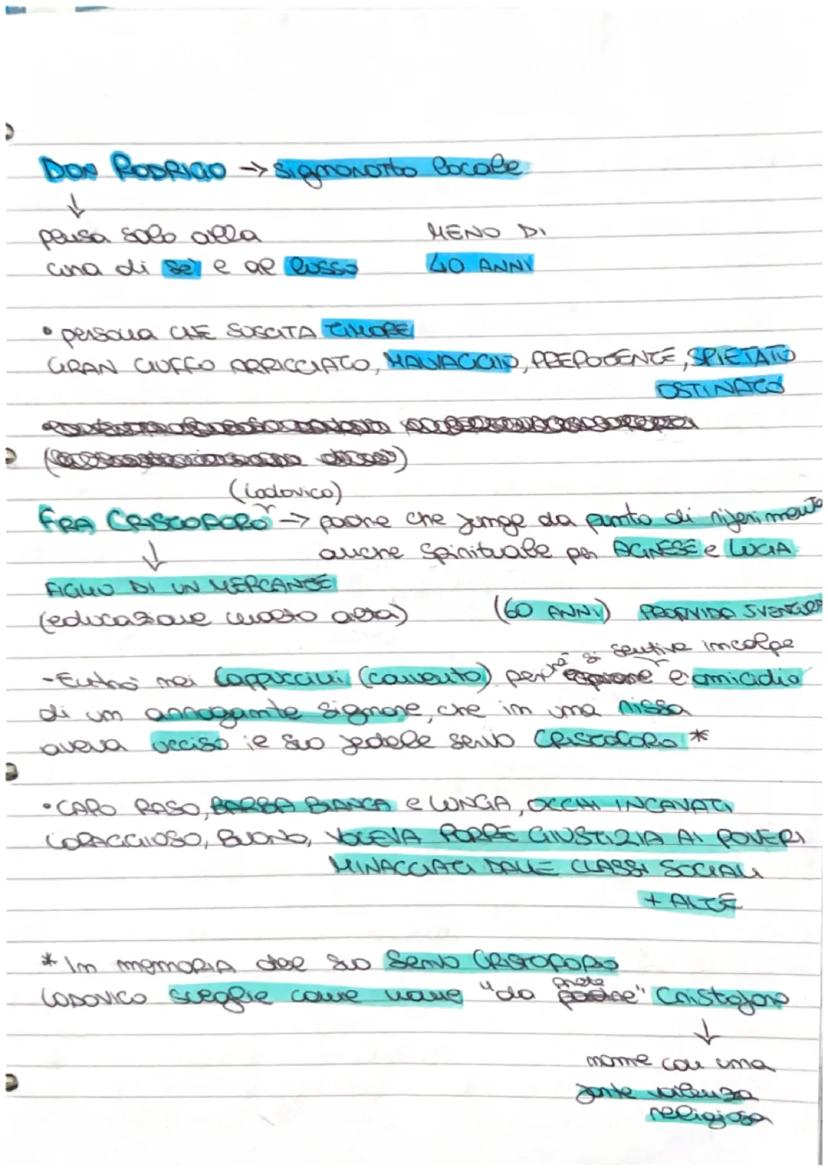 DON RODRIGO → signorotto locale
↓
pensa solo alla MENO DI
cura di sè e al lusso 40 ANNI
• persona CHE SUSCITA TIMORE
GRAN CIUFFO ARRICCIATO, MALVAGGIO, PREPOTENTE, SPIETATO
OSTINATO
(Lodovico)
FRA CRISTOFORO → padre che funge da punto di riferimento
↓ anche spirituale per AGNESE e LUCIA
FIGLIO DI UN MERCANTE
(educazione molto alta) (60 ANNI) PROVVIDA SVENTURA
si sentiva in colpa
- Entrò nei Cappuccini (convento) perchè e omicidio
di un arrogante signore, che in una rissa
aveva ucciso il suo fedele servo CRISTOFORO *
• CAPO RASO, BARBA BIANCA e LUNGA, OCCHI INCAVATI
CORAGGIOSO, BUONO, VOLEVA PORRE GIUSTIZIA AI POVERI
MINACCIATI DALLE CLASSI SOCIALI
+ ALTE
* In memoria del suo Servo CRISTOFORO
LODOVICO sceglie come nome "da frate" Cristoforo
↓
nome con una
forte valenza
religiosa